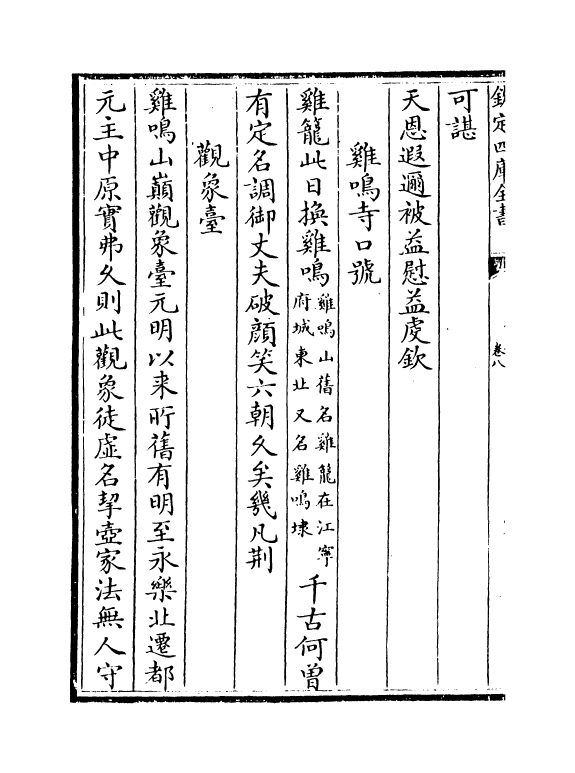 欽定四庫全書
卷八
可諶
天恩遐邇被益慰益虔欽
雞鳴寺口號
雞籠此日換雞鳴雞鳴山舊名雞籠在江寧府城東北又名雞鳴埭千古何曽
有定名調御丈夫破顔笑六朝久矣幾凡荆
觀象臺
雞鳴山巔觀象臺元明以来所舊有明至永樂北遷都
元主中原實弗久則此觀象徒虚名挈壺家法無人守